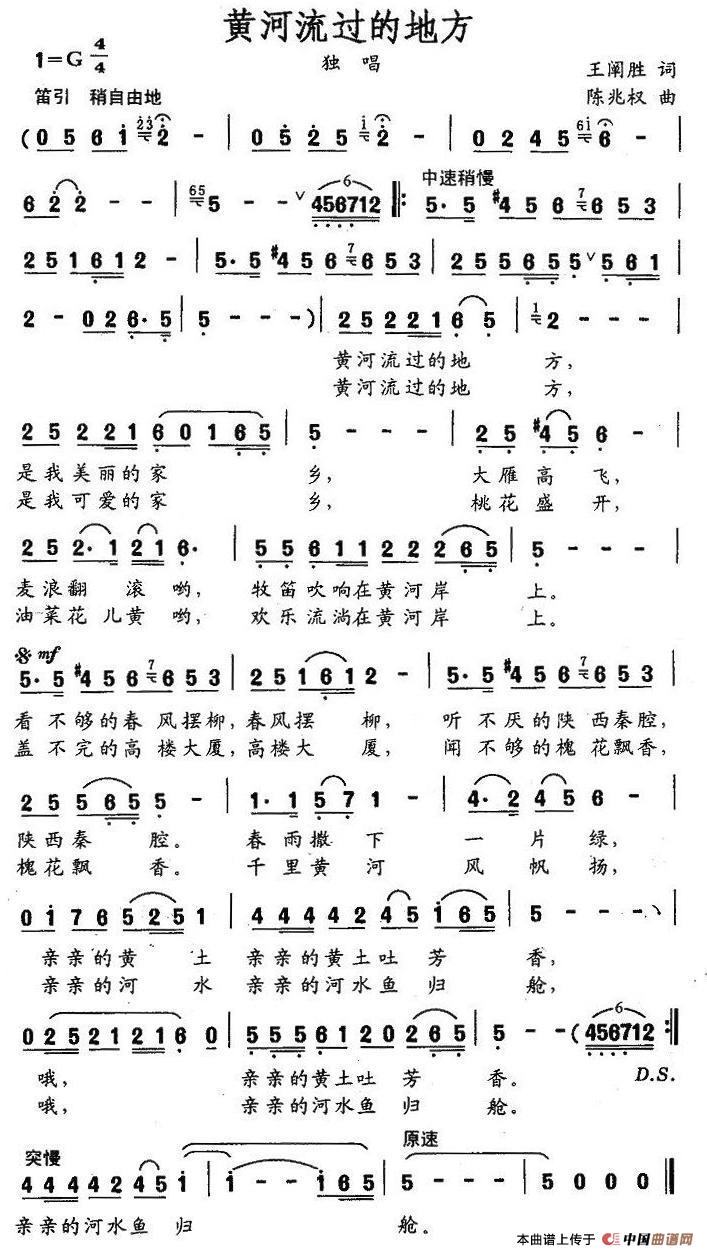 黄河流过的地方
1=G 4/4
独 唱
王阐胜 词
笛引 稍自由地
陈兆权 曲
(0 5 6 i 2 - | 0 5 2 5 2 - | 0 2 4 5 6 - |
6 2 2 - - | 5 - - 456712 |: 中速稍慢 5· 5 #4 5 6 6 5 3 |
2 5 1 6 1 2 - | 5· 5 #4 5 6 6 5 3 | 2 5 5 6 5 5 5 6 1 |
2 - 0 2 6· 5 | 5 - - - ) | 2 5 2 2 1 6 5 | 2 - - - |
黄河流过的地 方,
黄河流过的地 方,
2 5 2 2 1 6 0 1 6 5 | 5 - - - | 2 5 #4 5 6 - |
是我美丽的家 乡, 大雁高飞,
是我可爱的家 乡, 桃花盛开,
2 5 2· 1 2 1 6· | 5 5 6 1 1 2 2 2 6 5 | 5 - - - |
麦浪翻 滚哟, 牧笛吹响在黄河岸 上。
油菜花儿黄哟, 欢乐流淌在黄河岸 上。
mf
5· 5 #4 5 6 6 5 3 | 2 5 1 6 1 2 - | 5· 5 #4 5 6 6 5 3 |
看不够的春风摆柳,春风摆 柳, 听不厌的陕西秦腔,
盖不完的高楼大厦,高楼大 厦, 闻不够的槐花飘香,
2 5 5 6 5 5 - | 1· 1 5 7 1 - | 4· 2 4 5 6 - |
陕西秦 腔。 春雨撒 下 一 片绿,
槐花飘 香。 千里黄 河 风 帆扬,
0 i 7 6 5 2 5 1 | 4 4 4 4 2 4 5 i 6 5 | 5 - - - |
亲亲的黄 土 亲亲的黄土吐 芳 香,
亲亲的河 水 亲亲的河水鱼 归 舱,
0 2 5 2 1 2 1 6 0 | 5 5 5 6 1 2 0 2 6 5 | 5 - - (456712 :|
哦, 亲亲的黄土吐 芳 香。 D.S.
哦, 亲亲的河水鱼 归 舱。
突慢 原速
4 4 4 4 2 4 5 i | i - - i 6 5 | 5 - - - | 5 0 0 0 |
亲亲的河水鱼 归 舱。
本曲谱上传于 中国曲谱网